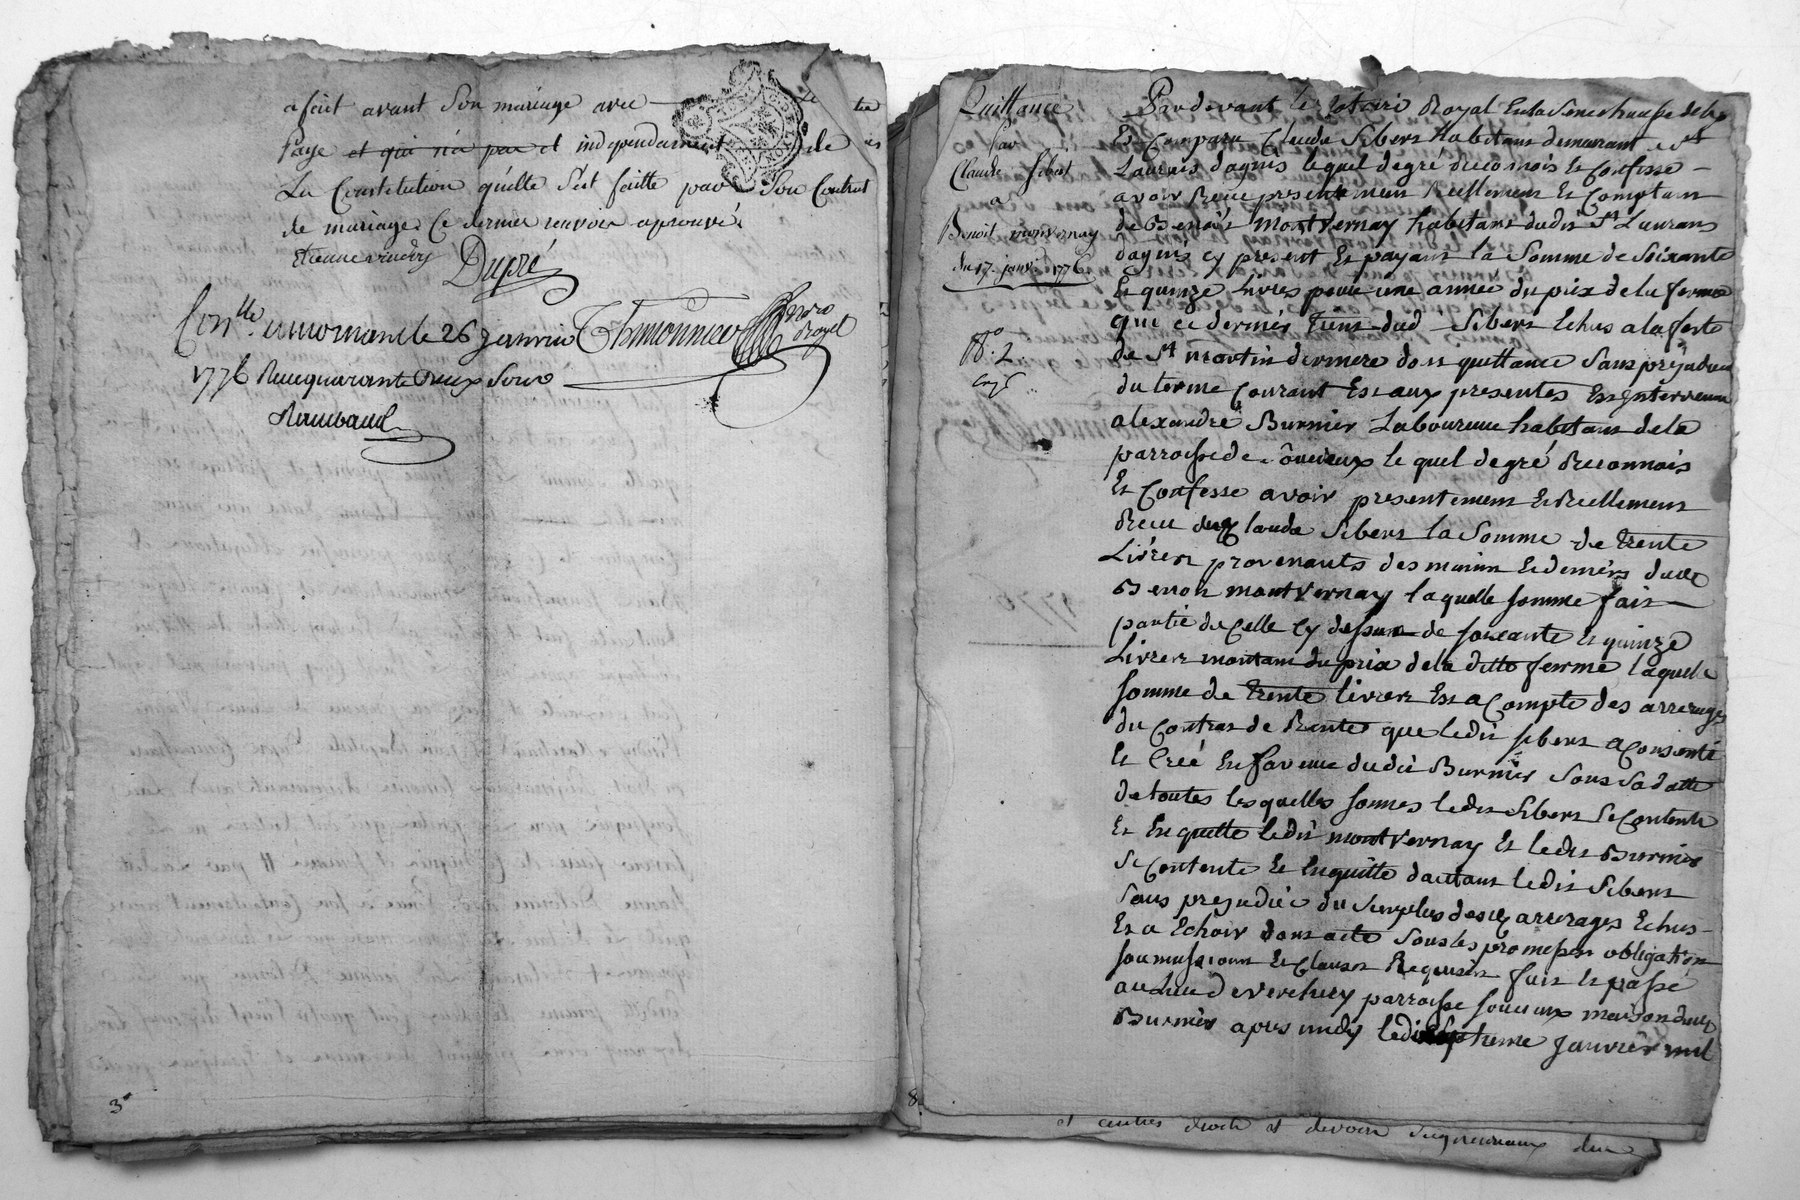 a fait avant Son mariage avec
paye et qui n'a par et independament de
La Constitution qu'elle S'est faitte par Son Contrat
de mariage. Ce dernier renvoir aprouvé.
Dupré
Con.lle a mornand le 26 janvier Thimonnier no.re Royal
1776 Recu quarante Deux Sous
Rambaud
3
Quittance
par
Claude Sibert
a
Benoit monvernay
du 17. janvi. 1776
Pardevant le Notaire Royal En la Senechaussé de Lyon
Est Comparu Claude Sibert habitant demeurant a St
Laurens dagnis lequel de gré Reconnois Et Confesse
avoir Receu presentement Reellement Et Comptant
de Benoit Montvernay habitant dudit St Laurans
dagnis cy present Et payant la Somme de Soixante
Et quinze Livres pour une année du prix de la ferme
que ce dernier tient dud. Sibert Echus a la feste
de St martin derniere dont quittance Sans prejudice
du terme Courant Et aux presentes Est Intervenu
alexandre Burnier Laboureur habitant de la
parroisse de lequel de gré Reconnais
Et Confesse avoir presentement Et Reellement
Receu dud. Claude Sibert la Somme de trente
Livres provenants des mains Et deniers dudit
Benoit montVernay laquelle somme fait
partie de Celle Cy dessus de soixante Et quinze
Livres montant du prix de la ditte ferme laquelle
somme de trente livres Est a Compte des arrerages
du Contrat de Rente que ledit sibert a Consenti
Et Créé En faveur dudit Burnier Sous Sa datte
de toutes lesquelles sommes ledit Sibert Se Contente
Et En quitte ledit montVernay Et ledit Burnier
Se Contente Et En quitte d'autant ledit Sibert
Sans prejudice du Surplus desd. arrerages Echus
Et a Echoir dont acte Sous les promesses obligations
soumissions Et Clauses Requises fait Et passé
au Lieu de Verchery parroisse maison dudit
Burnier apres midy le dixseptieme Janvier mil
8.
et autres droits et devoirs Seigneuriaux